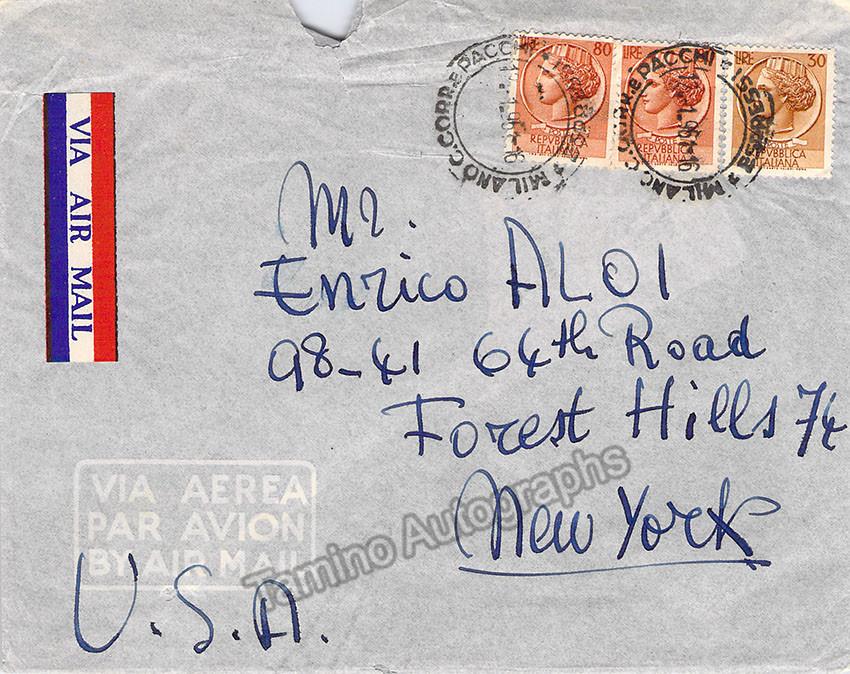 LIRE 80
POSTE
REPVBBLICA
ITALIANA
LIRE
POSTE
REPVBBLICA
ITALIANA
LIRE 30
POSTE
REPVBBLICA
ITALIANA
MILANO C. CORR. E PACCHI
MILANO C. CORR. E PACCHI
VIA AIR MAIL
Mr.
Enrico ALOI
98-41 64th Road
Forest Hills 74
New York
VIA AEREA
PAR AVION
BY AIR MAIL
U.S.A.
Tamino Autographs